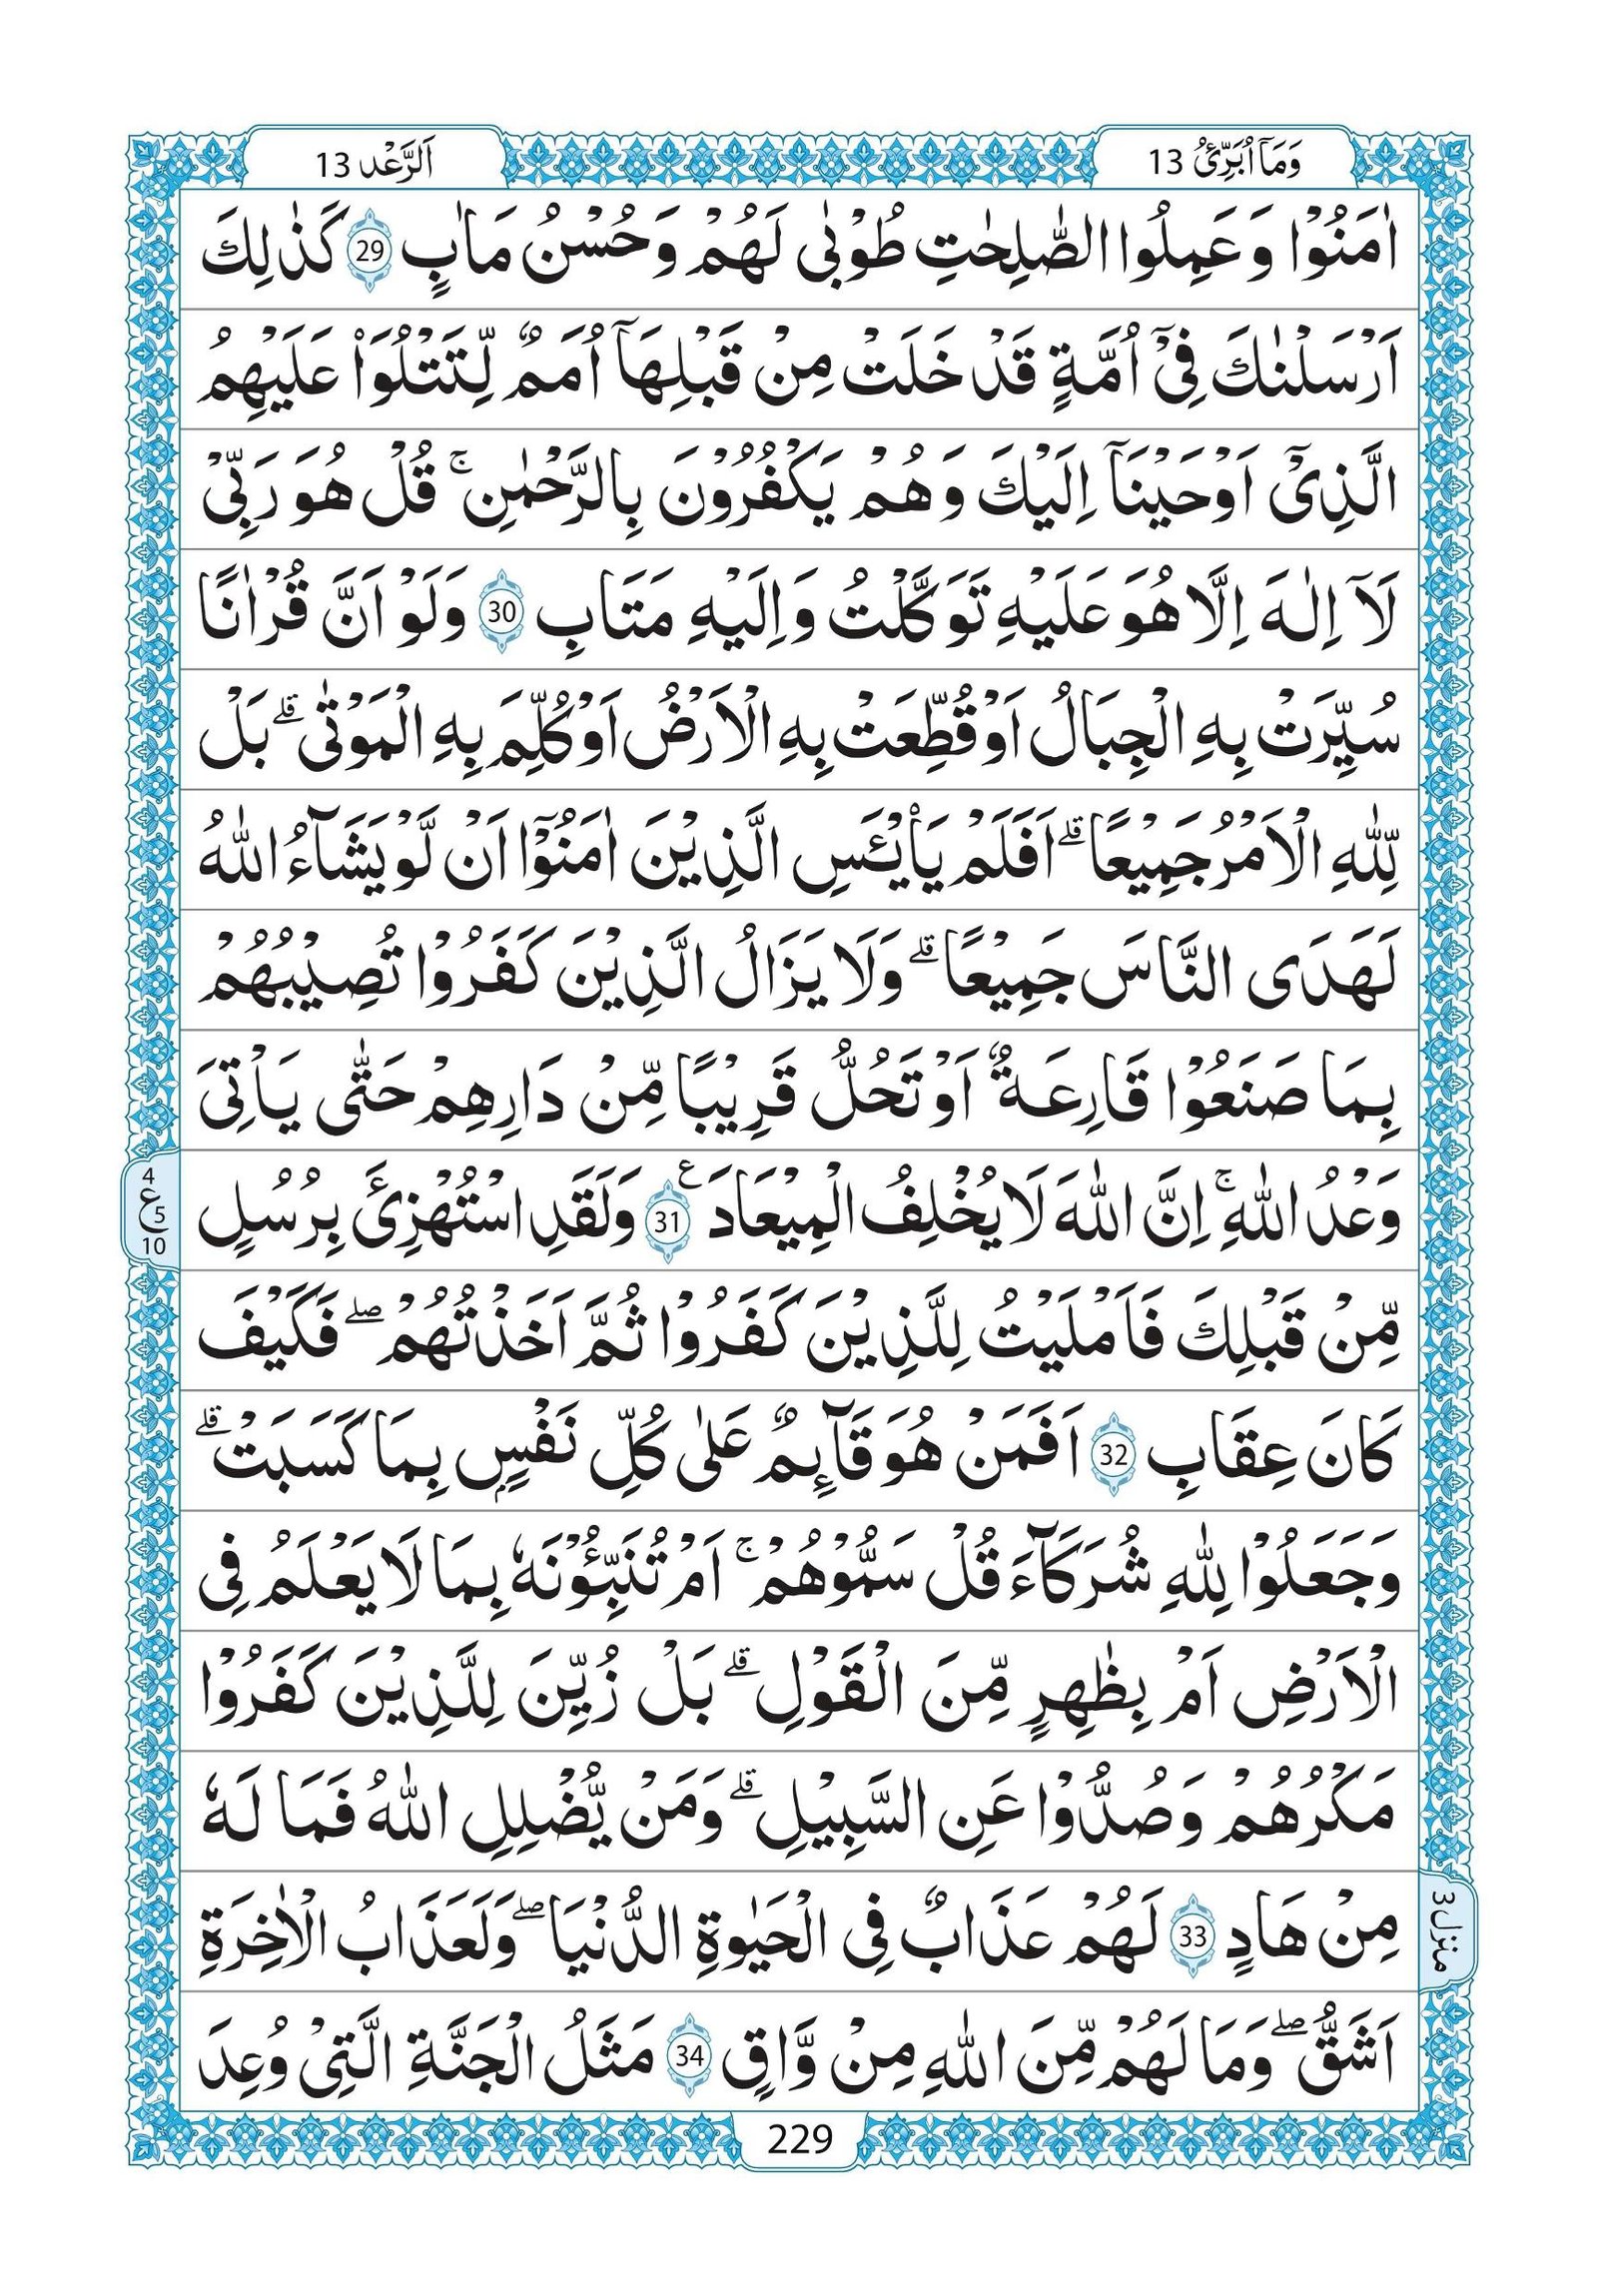 وَمَاۤ اُبَرِّئُ 13
اَلرَّعْد 13
اٰمَنُوْا وَ عَمِلُوا الصّٰلِحٰتِ طُوْبٰى لَهُمْ وَ حُسْنُ مَاٰبٍ 29 كَذٰلِكَ
اَرْسَلْنٰكَ فِیْۤ اُمَّةٍ قَدْ خَلَتْ مِنْ قَبْلِهَاۤ اُمَمٌ لِّتَتْلُوَاۡ عَلَیْهِمُ
الَّذِیْۤ اَوْحَیْنَاۤ اِلَیْكَ وَ هُمْ یَكْفُرُوْنَ بِالرَّحْمٰنِ ۚ قُلْ هُوَ رَبِّیْ
لَاۤ اِلٰهَ اِلَّا هُوَ عَلَیْهِ تَوَكَّلْتُ وَ اِلَیْهِ مَتَابِ 30 وَ لَوْ اَنَّ قُرْاٰنًا
سُیِّرَتْ بِهِ الْجِبَالُ اَوْ قُطِّعَتْ بِهِ الْاَرْضُ اَوْ كُلِّمَ بِهِ الْمَوْتٰى ۗ بَلْ
لِّلّٰهِ الْاَمْرُ جَمِیْعًا ۗ اَفَلَمْ یَا۟یْـَٔسِ الَّذِیْنَ اٰمَنُوْۤا اَنْ لَّوْ یَشَآءُ اللّٰهُ
لَهَدَى النَّاسَ جَمِیْعًا ۗ وَ لَا یَزَالُ الَّذِیْنَ كَفَرُوْا تُصِیْبُهُمْ
بِمَا صَنَعُوْا قَارِعَةٌ اَوْ تَحُلُّ قَرِیْبًا مِّنْ دَارِهِمْ حَتّٰى یَاْتِیَ
وَعْدُ اللّٰهِ ۚ اِنَّ اللّٰهَ لَا یُخْلِفُ الْمِیْعَادَ ع 31 وَ لَقَدِ اسْتُهْزِئَ بِرُسُلٍ
4
ع 5
10
مِّنْ قَبْلِكَ فَاَمْلَیْتُ لِلَّذِیْنَ كَفَرُوْا ثُمَّ اَخَذْتُهُمْ ۖ فَكَیْفَ
كَانَ عِقَابِ 32 اَفَمَنْ هُوَ قَآىِٕمٌ عَلٰى كُلِّ نَفْسٍۭ بِمَا كَسَبَتْ ۗ
وَ جَعَلُوْا لِلّٰهِ شُرَكَآءَ قُلْ سَمُّوْهُمْ ۚ اَمْ تُنَبِّـُٔوْنَهٗ بِمَا لَا یَعْلَمُ فِی
الْاَرْضِ اَمْ بِظٰهِرٍ مِّنَ الْقَوْلِ ۗ بَلْ زُیِّنَ لِلَّذِیْنَ كَفَرُوْا
مَكْرُهُمْ وَ صُدُّوْا عَنِ السَّبِیْلِ ۗ وَ مَنْ یُّضْلِلِ اللّٰهُ فَمَا لَهٗ
مِنْ هَادٍ 33 لَهُمْ عَذَابٌ فِی الْحَیٰوةِ الدُّنْیَا ۖ وَ لَعَذَابُ الْاٰخِرَةِ
منزل 3
اَشَقُّ ۖ وَ مَا لَهُمْ مِّنَ اللّٰهِ مِنْ وَّاقٍ 34 مَثَلُ الْجَنَّةِ الَّتِیْ وُعِدَ
229